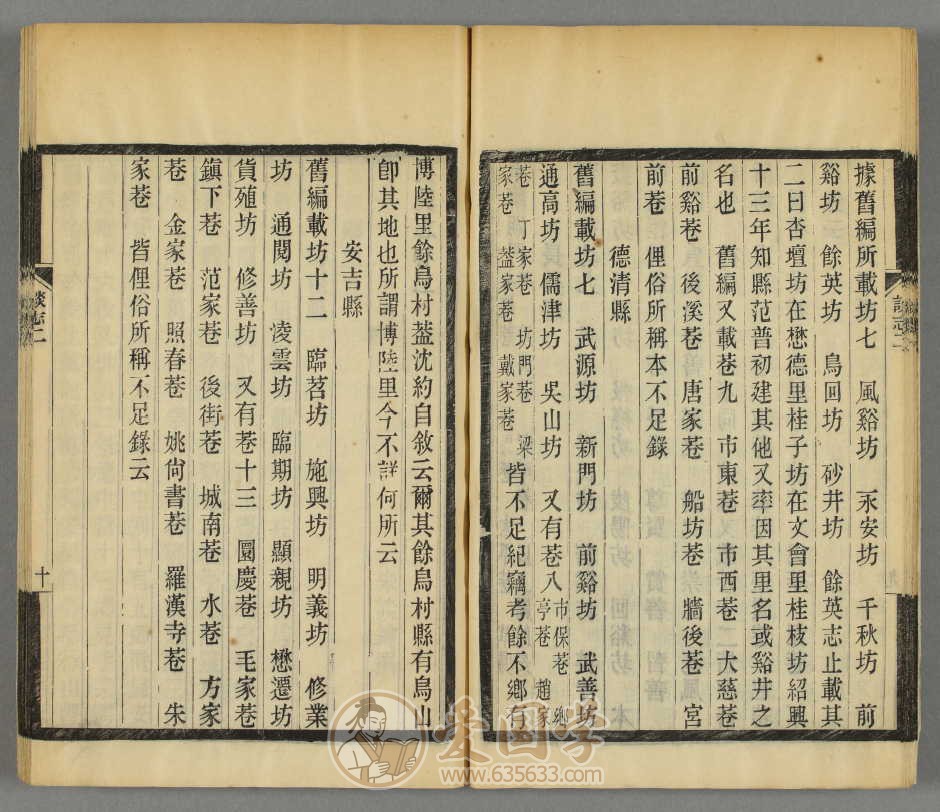 據舊編所載坊七　風谿坊　永安坊　千秋坊　前
谿坊　餘英坊　鳥回坊　砂井坊　餘英志止載其
二曰杏壇坊在懋德里桂子坊在文會里桂枝坊紹興
十三年知縣范普初建其他又率因其里名或谿井之
名也　舊編又載巷九　市東巷　市西巷　大慈巷
前谿巷　後溪巷　唐家巷　船坊巷　牆後巷　宮
前巷　俚俗所稱本不足錄
德清縣
舊編載坊七　武源坊　新門坊　前谿坊　武善坊
通高坊　儒津坊　吳山坊　又有巷八　市保巷　鄉
亭巷　趙家
巷　丁家巷　坊門巷　梁
家巷　葢家巷　戴家巷
皆不足紀竊考餘不鄉有
博陸里餘烏村葢沈約自敘云爾其餘烏村縣有烏山
卽其地也所謂博陸里今不詳何所云
安吉縣
舊編載坊十二　臨苕坊　施興坊　明義坊　修業
坊　通閱坊　凌雲坊　臨期坊　顯親坊　懋遷坊
貨殖坊　修善坊　又有巷十三　圜慶巷　毛家巷
鎮下巷　范家巷　後街巷　城南巷　水巷　方家
巷　金家巷　照春巷　姚尙書巷　羅漢寺巷　朱
家巷　皆俚俗所稱不足錄云
談志二
十
愛国学
www.635633.com